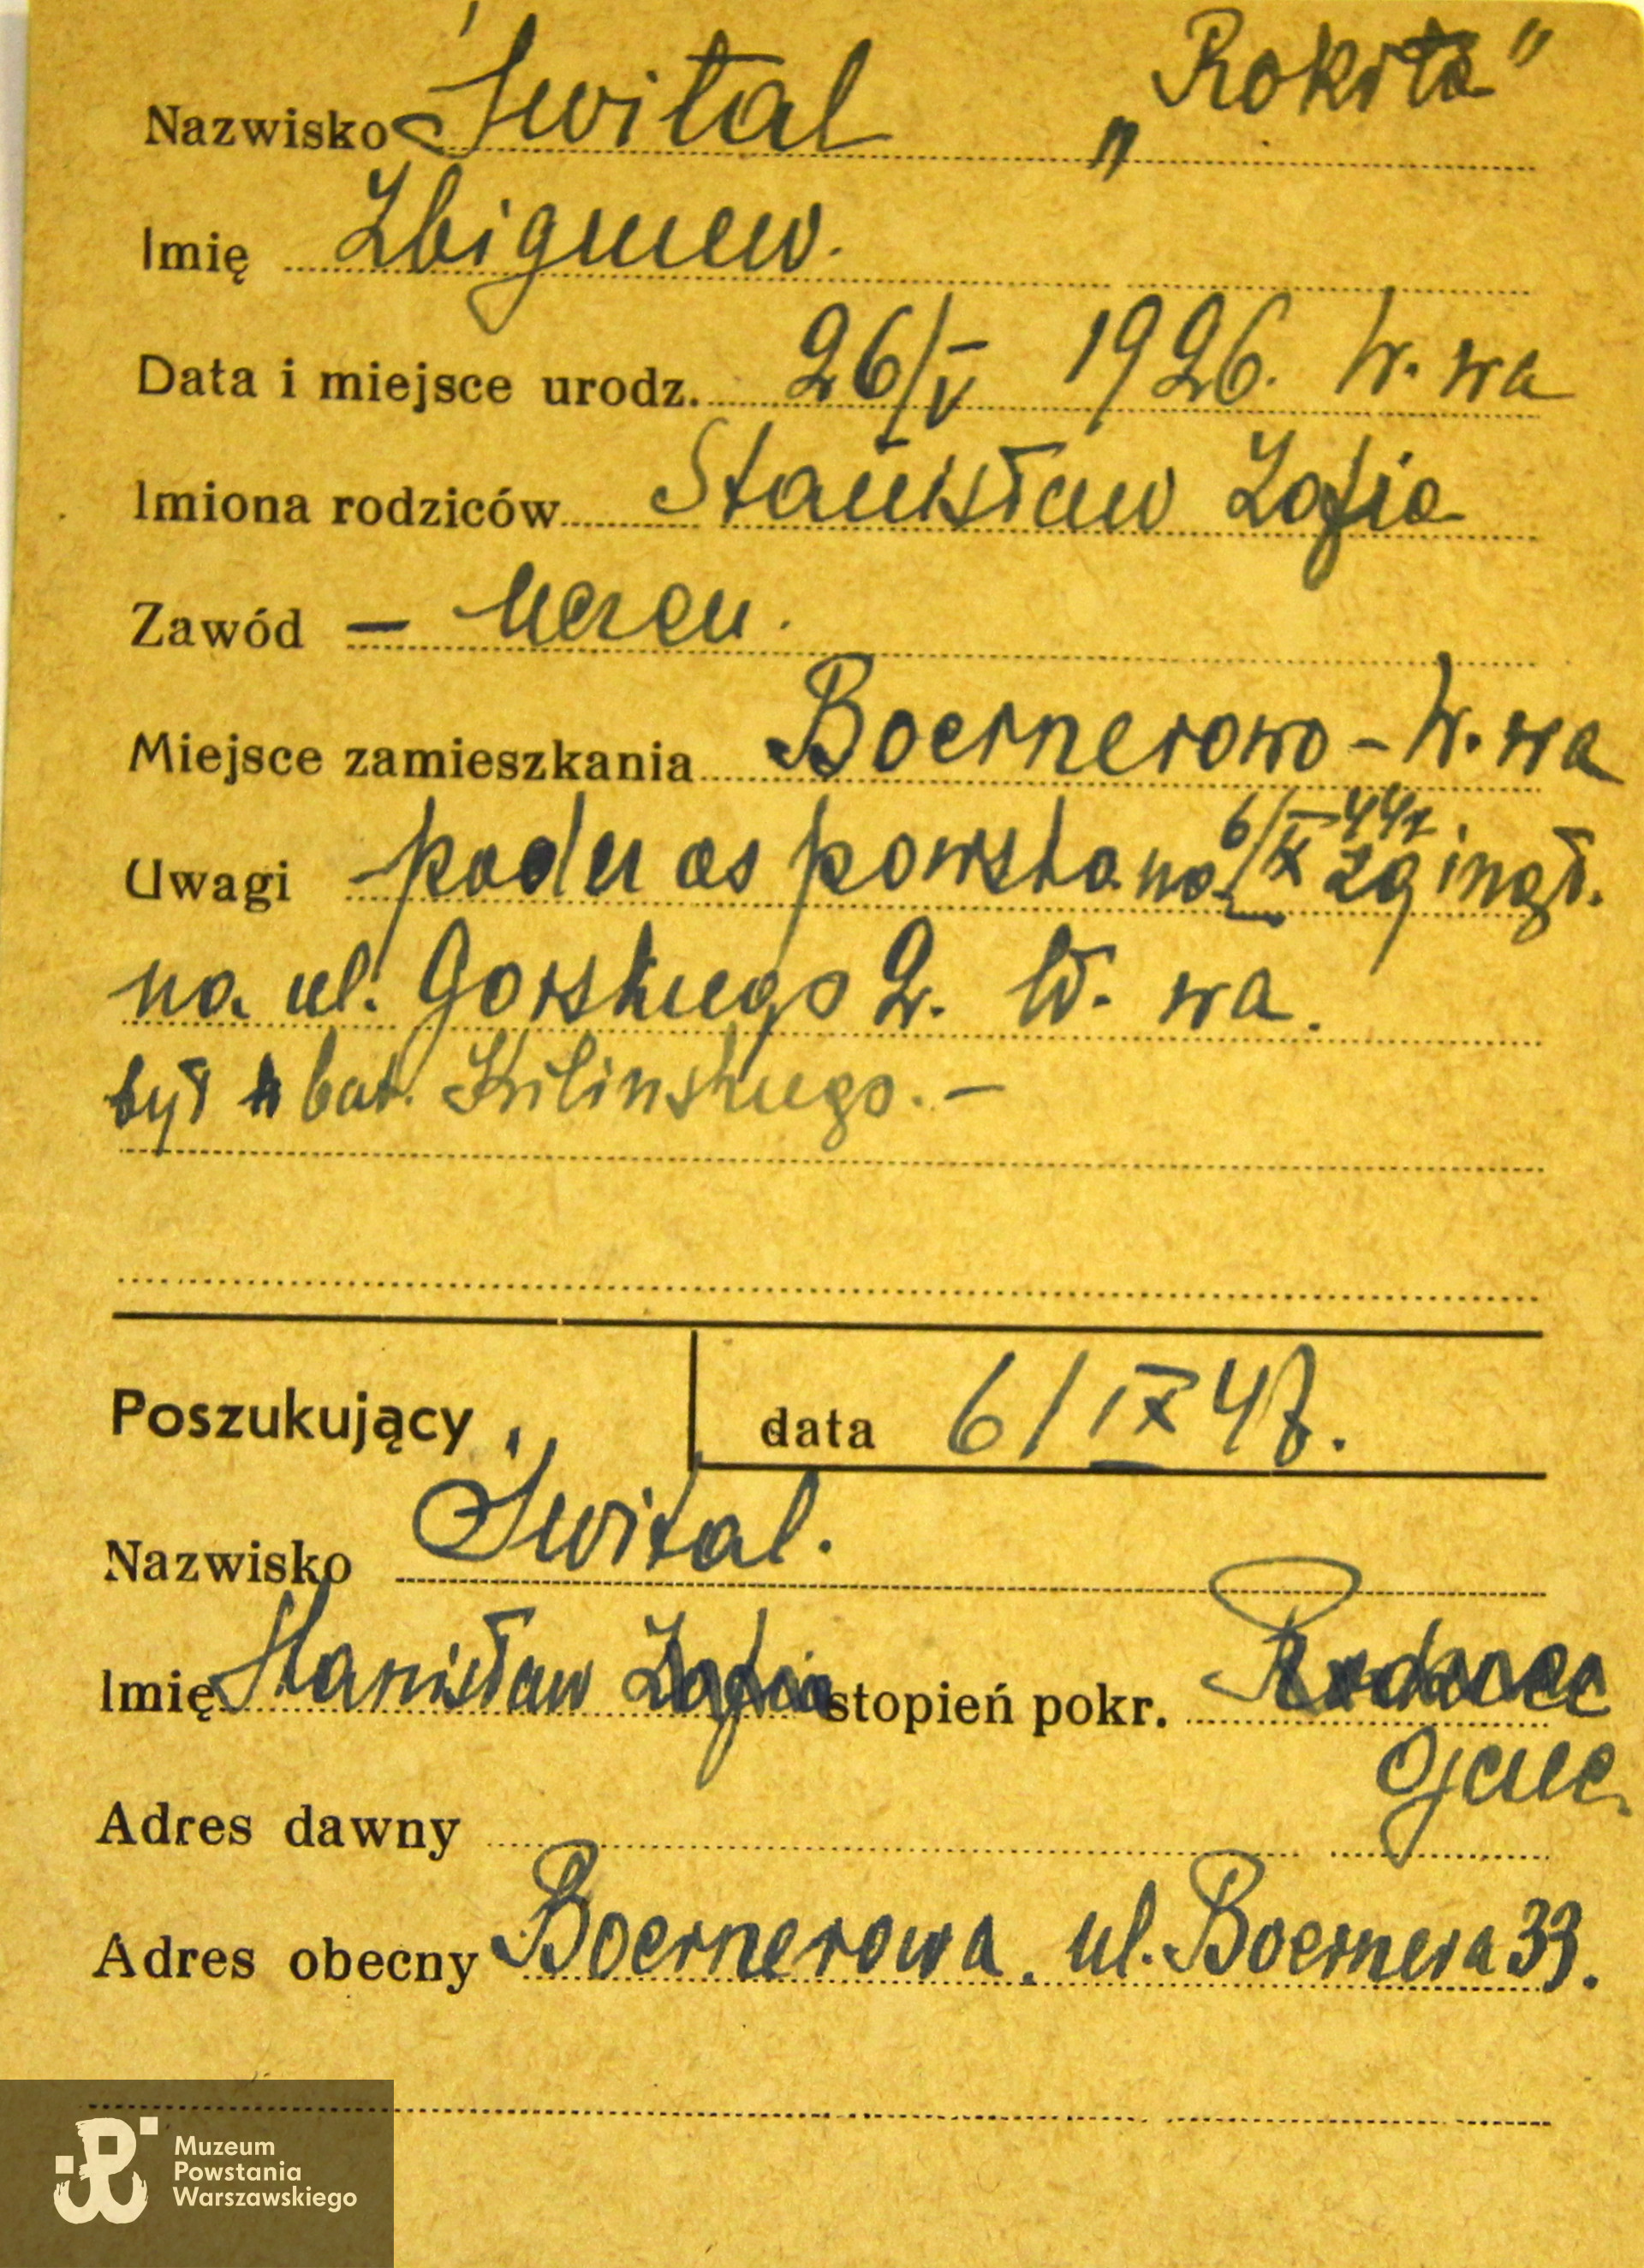 Nazwisko Śwital „Rokita"
Imię Zbigniew.
Data i miejsce urodz. 26/V 1926. W. wa
Imiona rodziców Stanisław Zofia
Zawód – uczeń.
Miejsce zamieszkania Boernerowo – W. wa
6/IX 44r.
Uwagi – podczas powstana zginął.
na ul. Gorskiego 2. W. wa.
był w bat. Kilinskiego. –
Poszukujący data 6/IX 47.
Nazwisko Śwital.
Imię Stanisław Zofia stopień pokr. Rodzice
Ojciec
Adres dawny
Adres obecny Boernerowa. ul. Boernera 33.
Muzeum
Powstania
Warszawskiego